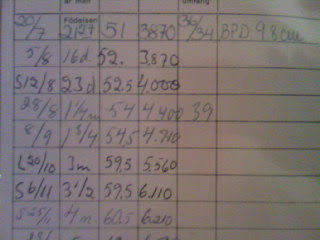 är mån
Födelsen omfång
20/7 2127 51 3870 36/34 BPD 98cm
5/8 16d 52. 3.870
S12/8 23d 525 4.000
28/8 1 1/4m 54 4.400 39
8/9 1 3/4 545 4.710
L20/10 3m 59.5 5.560
S6/11 3 1/2 59.5 6.110
S25/11 4m 60.5 6.210